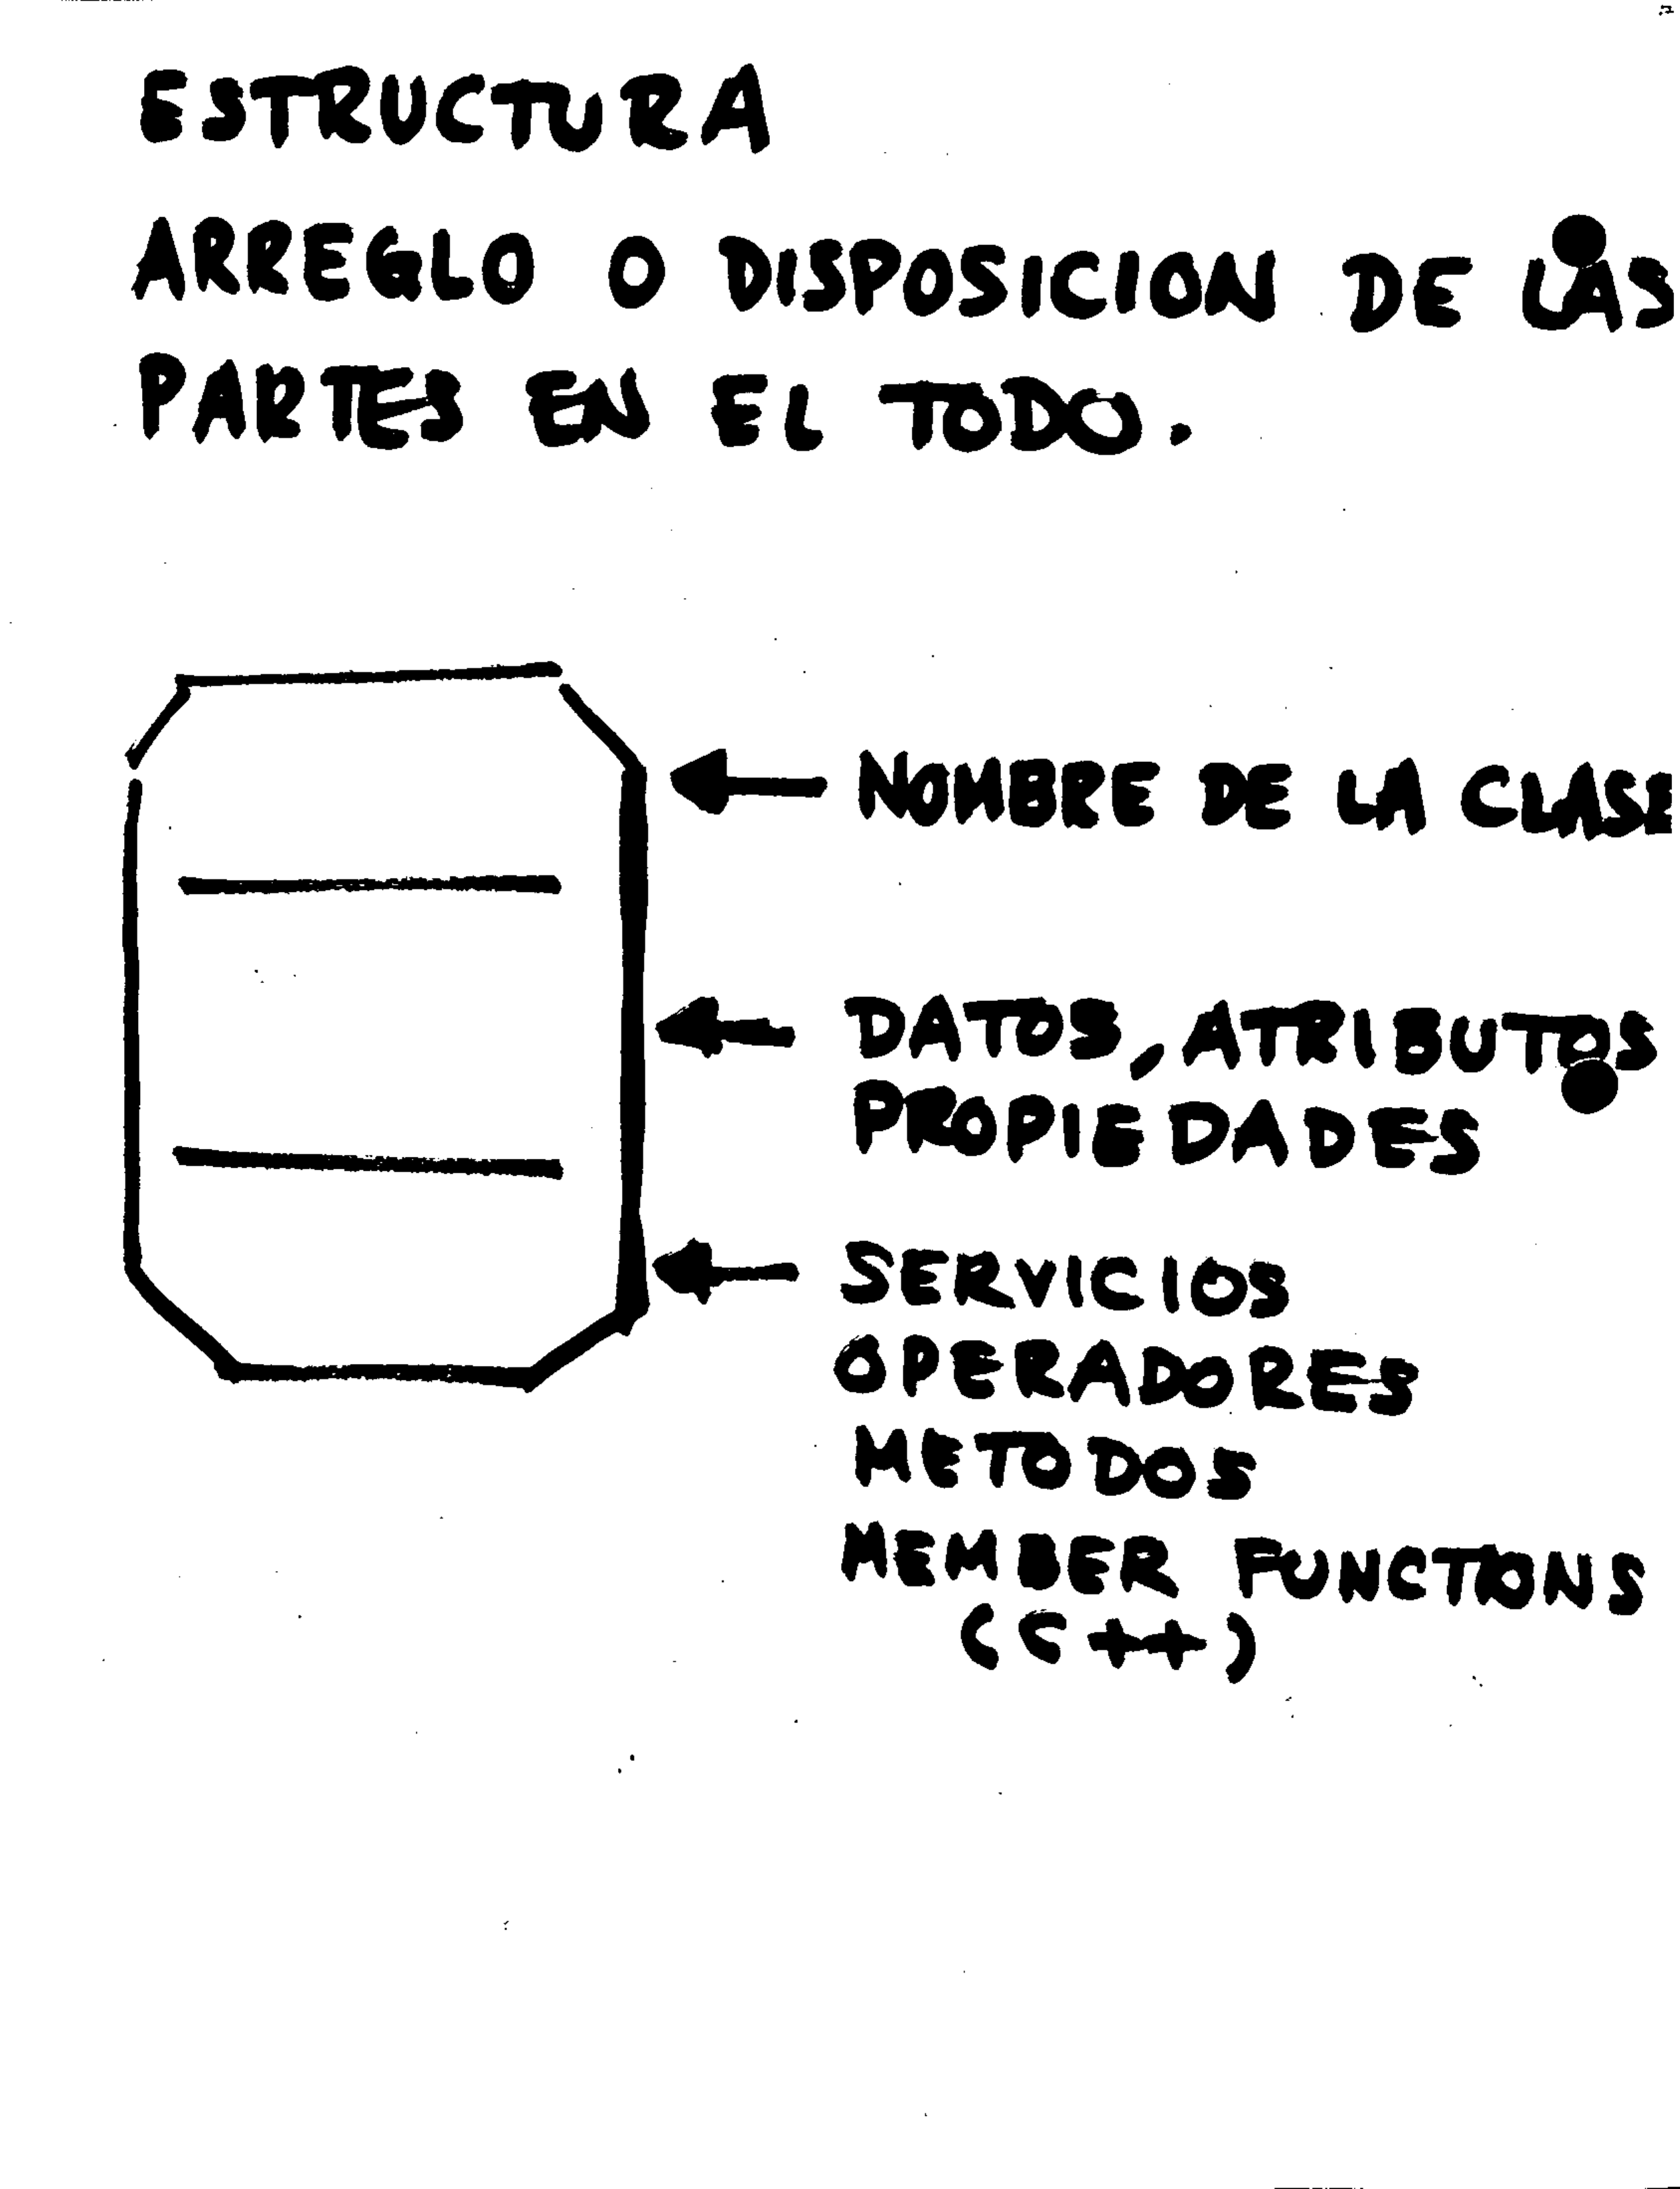 ESTRUCTURA
ARREGLO O DISPOSICION DE LAS
PARTES EN EL TODO.
NOMBRE DE LA CLASE
DATOS, ATRIBUTOS
PROPIEDADES
SERVICIOS
OPERADORES
METODOS
MEMBER FUNCTIONS
(C++)